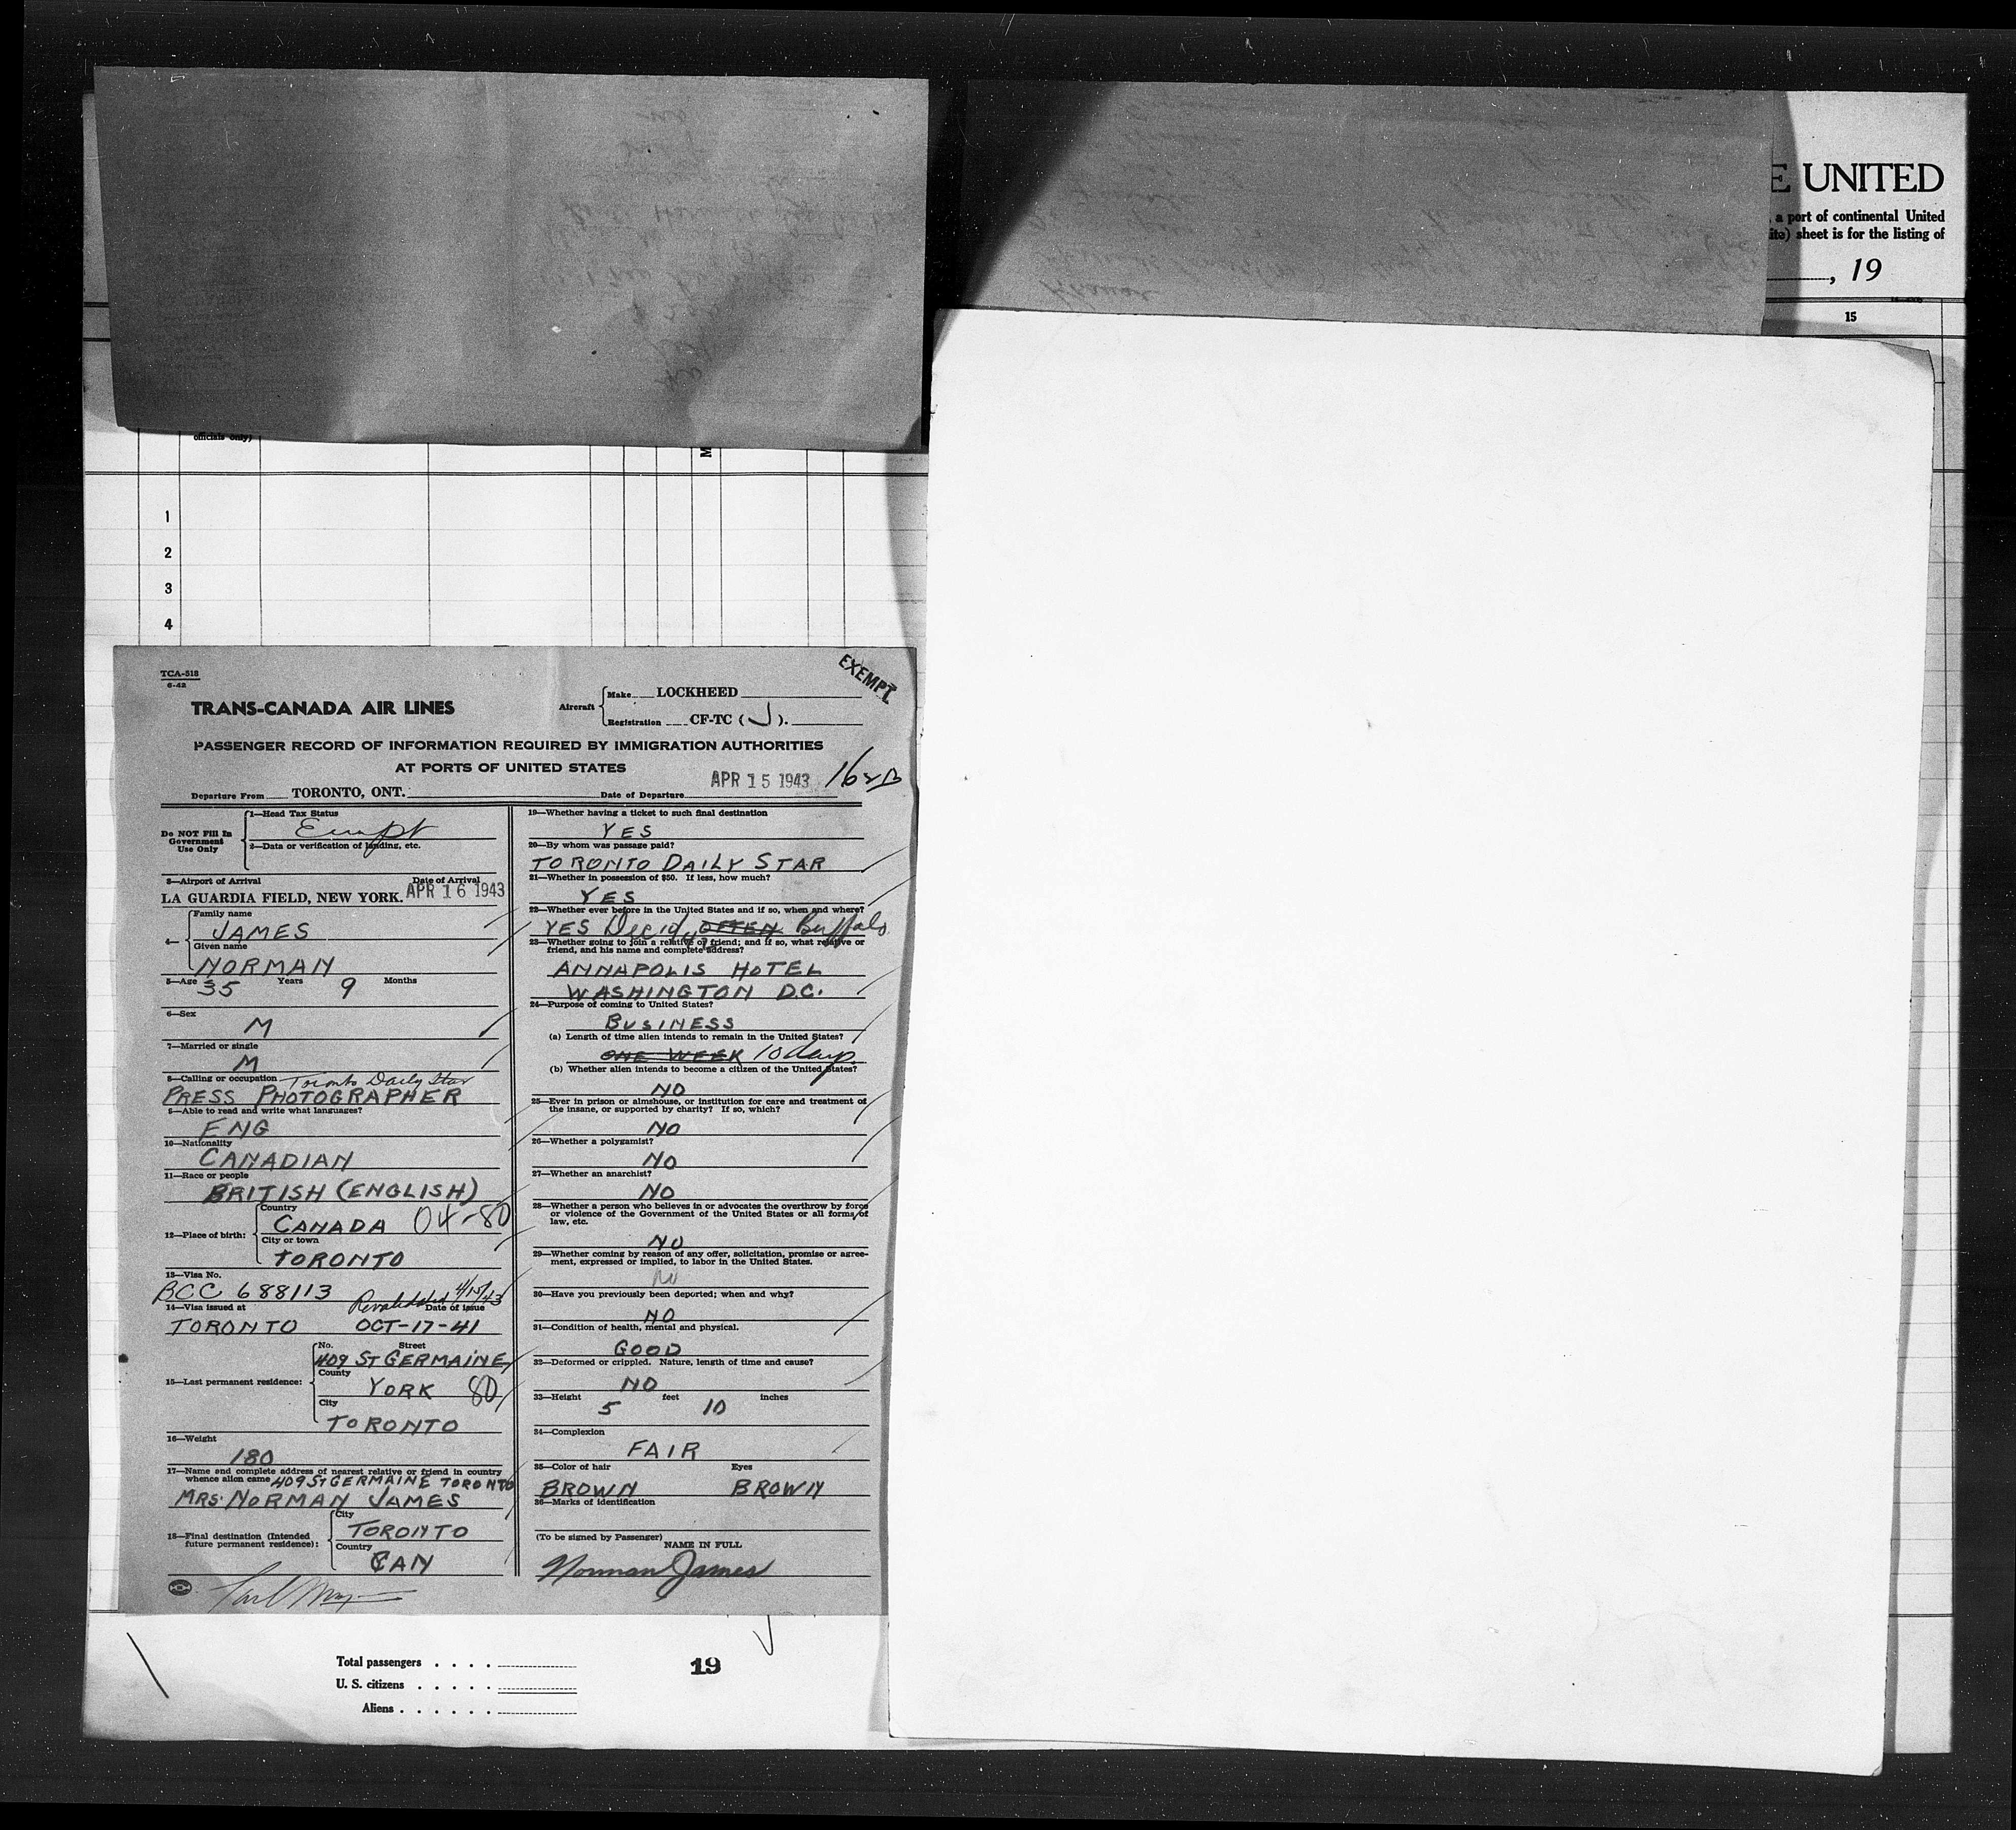 E UNITED
, a port of continental United
ite) sheet is for the listing of
, 19
15
officials only)
M
1
2
3
4
TCA-518
6-42
EXEMPT
TRANS-CANADA AIR LINES
Aircraft
Make LOCKHEED
Registration CF-TC ( J ).
PASSENGER RECORD OF INFORMATION REQUIRED BY IMMIGRATION AUTHORITIES
AT PORTS OF UNITED STATES
Departure From TORONTO, ONT. Date of Departure APR 15 1943
Do NOT Fill In
Government
Use Only
1—Head Tax Status
2—Data or verification of landing, etc.
3—Airport of Arrival Date of Arrival
LA GUARDIA FIELD, NEW YORK. APR 16 1943
4—
Family name
JAMES
Given name
NORMAN
5—Age 35 Years 9 Months
6—Sex
M
7—Married or single
M
8—Calling or occupation Toronto Daily Star
PRESS PHOTOGRAPHER
9—Able to read and write what languages?
ENG
10—Nationality
CANADIAN
11—Race or people
BRITISH (ENGLISH)
12—Place of birth:
Country
CANADA 04-80
City or town
TORONTO
13—Visa No.
BCC 688113
Revalidated 4/15/43
14—Visa issued at Date of issue
TORONTO OCT-17-41
15—Last permanent residence:
No. Street
409 ST GERMAINE
County
YORK 80
City
TORONTO
16—Weight
180
17—Name and complete address of nearest relative or friend in country
whence alien came 409 ST GERMAINE TORONTO
MRS. NORMAN JAMES
18—Final destination (Intended
future permanent residence):
City
TORONTO
Country
CAN
19—Whether having a ticket to such final destination
YES
20—By whom was passage paid?
TORONTO DAILY STAR
21—Whether in possession of $50. If less, how much?
YES
22—Whether ever before in the United States and if so, when and where?
YES Dec OFTEN Buffalo
23—Whether going to join a relative or friend; and if so, what relative or
friend, and his name and complete address?
ANNAPOLIS HOTEL
WASHINGTON D.C.
24—Purpose of coming to United States?
BUSINESS
(a) Length of time alien intends to remain in the United States?
ONE WEEK 10 days
(b) Whether alien intends to become a citizen of the United States?
NO
25—Ever in prison or almshouse, or institution for care and treatment of
the insane, or supported by charity? If so, which?
NO
26—Whether a polygamist?
NO
27—Whether an anarchist?
NO
28—Whether a person who believes in or advocates the overthrow by force
or violence of the Government of the United States or all forms of
law, etc.
NO
29—Whether coming by reason of any offer, solicitation, promise or agree-
ment, expressed or implied, to labor in the United States.
No
30—Have you previously been deported; when and why?
NO
31—Condition of health, mental and physical.
GOOD
32—Deformed or crippled. Nature, length of time and cause?
NO
33—Height feet inches
5 10
34—Complexion
FAIR
35—Color of hair Eyes
BROWN BROWN
36—Marks of identification
(To be signed by Passenger)
NAME IN FULL
Norman James
Total passengers . . . .
U. S. citizens . . . . .
Aliens . . . . . .
19